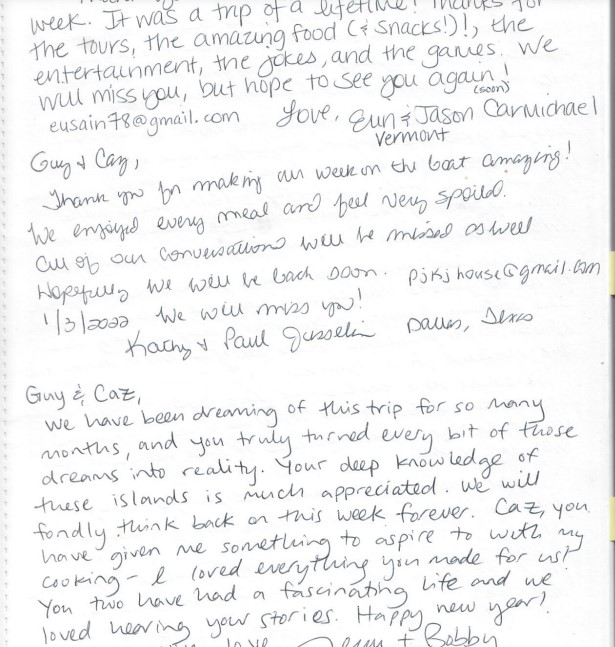 week. It was a trip of a lifetime! Thanks for
the tours, the amazing food (& snacks!)!, the
entertainment, the jokes, and the games. We
will miss you, but hope to see you again! (soon)
eusain78@gmail.com Love, Eun & Jason Carmichael
Vermont
Guy & Caz,
Thank you for making our week on the boat amazing!
We enjoyed every meal and feel very spoiled.
All of our conversations will be missed as well
Hopefully we will be back soon. pjkjhouse@gmail.com
1/3/2022 We will miss you!
Kathy & Paul Dallas, Texas
Guy & Caz,
We have been dreaming of this trip for so many
months, and you truly turned every bit of those
dreams into reality. Your deep knowledge of
these islands is much appreciated. We will
fondly think back on this week forever. Caz, you
have given me something to aspire to with my
cooking - I loved everything you made for us!
You two have had a fascinating life and we
loved hearing your stories. Happy new year!
love + Bobby